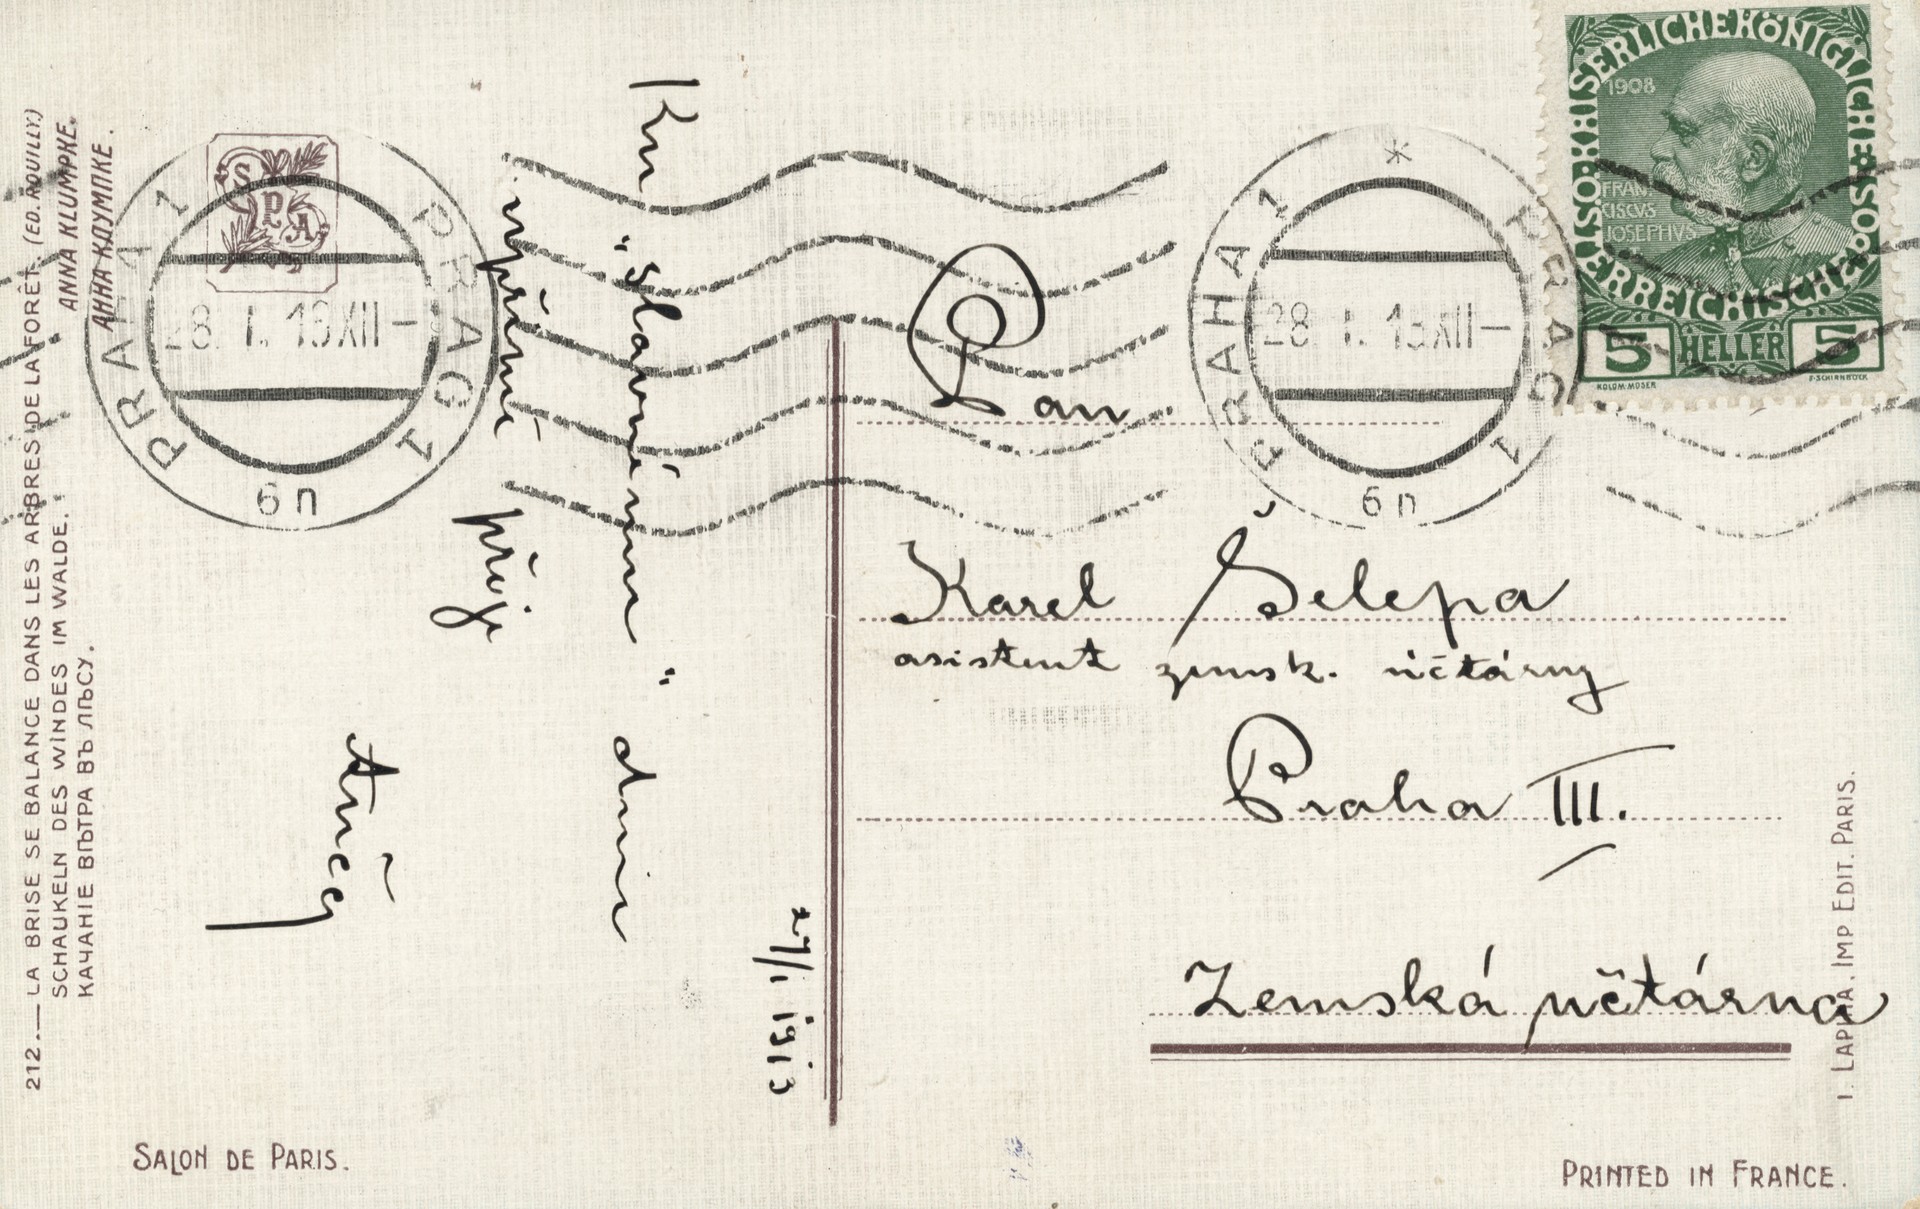 212.— LA BRISE SE BALANCE DANS LES ARBRES DE LA FORÊT. (ED. ROUILLY.)
SCHAUKELN DES WINDES IM WALDE.
КАЧАНІЕ ВѢТРА ВЪ ЛѢСУ.
ANNA KLUMPKE.
АННА КЛУМПКЕ.
SPA
PRAHA 1 PRAG 1
28. I. 13 XII—
6n
Ku "slavnému" dnu
upřímě přeje
27/I 1913
*
PRAHA 1 PRAG 1
28. I. 13 XII—
6n
KAISERLICHE KÖNIGLICHE ÖSTERREICHISCHE POST
1908
FRAN
CISCVS
IOSEPHVS
5 HELLER 5
KOLOM. MOSER F. SCHIRNBÖCK
Pan
Karel Šelepa
asistent zemsk. účtárny
Praha III.
Zemská účtárna
I. LAPINA. IMP EDIT. PARIS.
SALON DE PARIS.
PRINTED IN FRANCE.